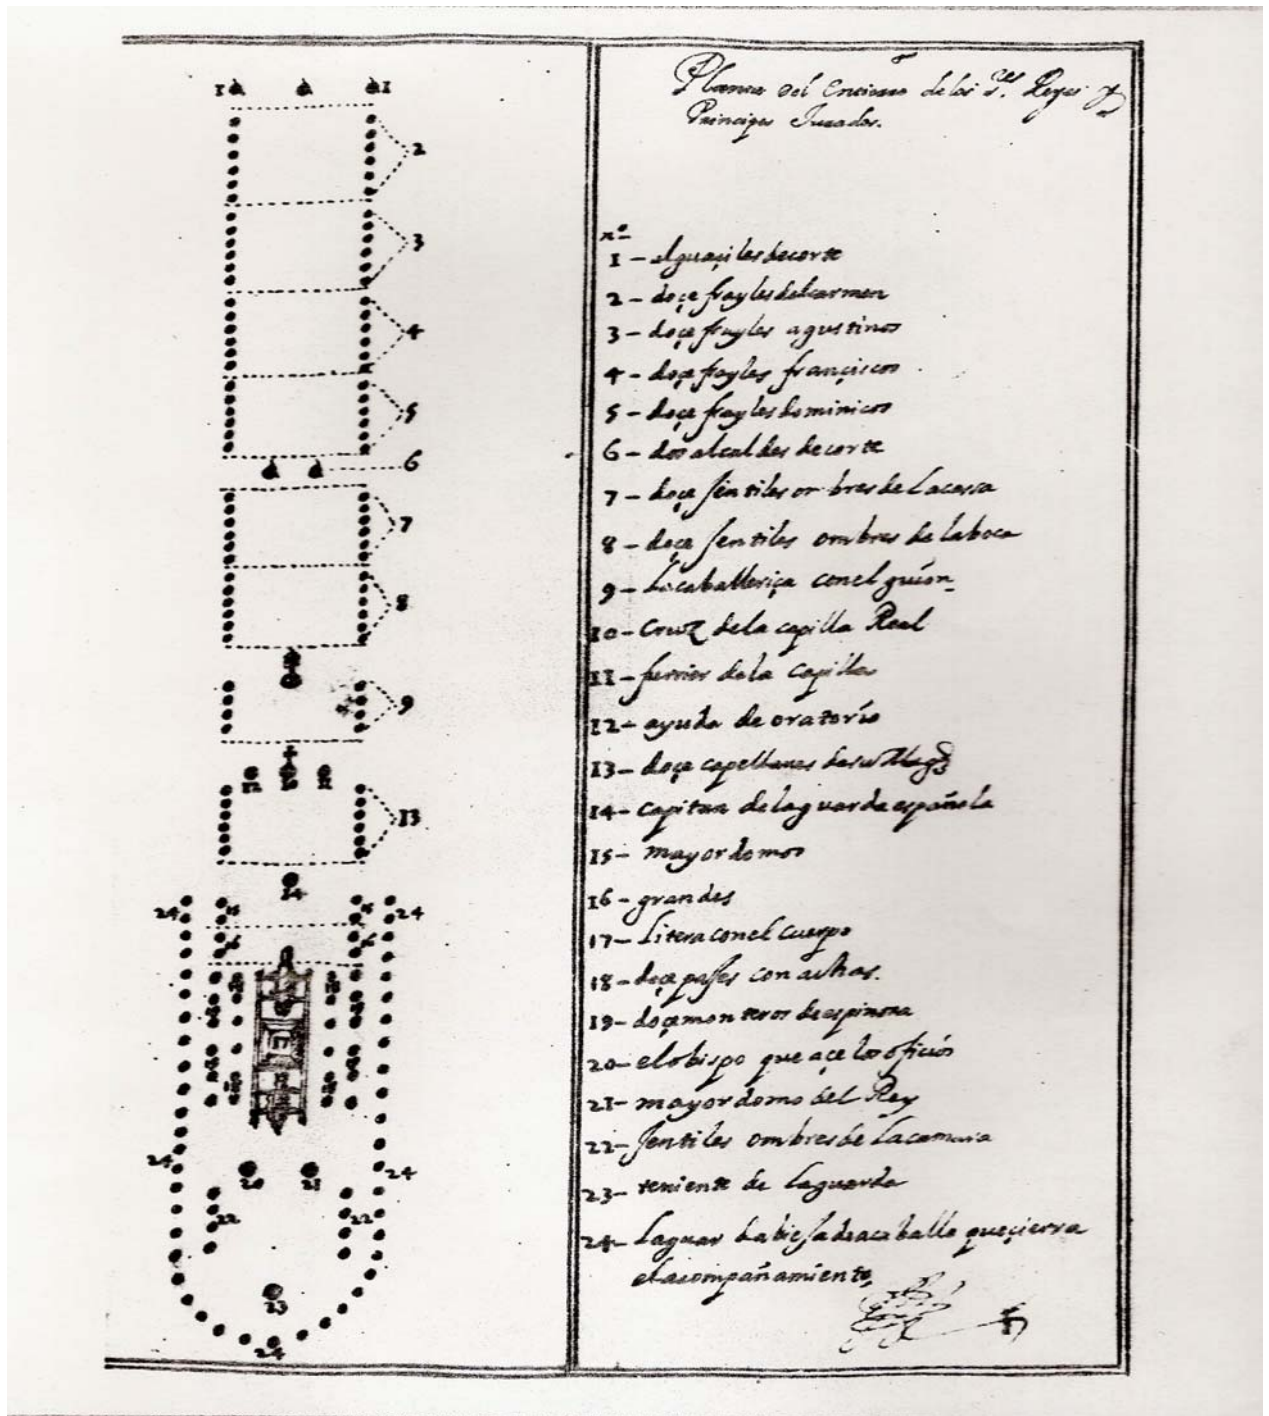 Planta del Entierro de los S.res Reyes y
Principes Jurados.
nº
1 - alguaçiles de corte
2 - doçe frayles del carmen
3 - doçe frayles agustinos
4 - doçe frayles françiscos
5 - doçe frayles dominicos
6 - dos alcaldes de corte
7 - doçe jentiles onbres de la cassa
8 - doçe jentiles ombres de la boca
9 - la caballeriça con el guion
10 - Cruz de la capilla Real
11 - furrier de la capilla
12 - ayuda de oratorio
13 - doçe capellanes de su Magd
14 - capitan de la guarda española
15 - mayordomos
16 - grandes
17 - Litera con el cuerpo
18 - doçe pajes con achas.
19 - doçe monteros de espinosa
20 - el obispo que açe los ofiçios
21 - mayordomo del Rey
22 - jentiles ombres de la camara
23 - teniente de la guarda
24 - La guarda bieja de a caballo que çierra
el acompañamiento
1 1
2
3
4
5
6
7
8
9
12 10 11
13
14
24 15 15 24
16 16
24 24
20 21
22 22
23
24